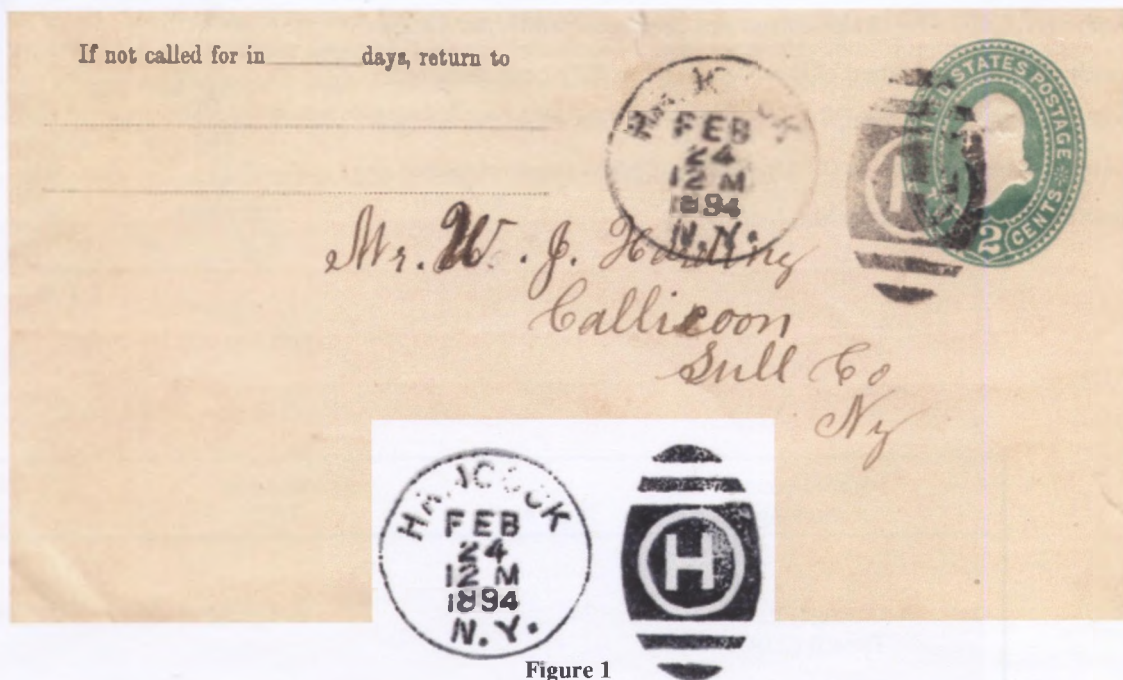 If not called for in ______ days, return to
HANCOCK
FEB
24
12 M
1894
N.Y.
H
UNITED STATES POSTAGE
2 CENTS
Mr. W. J. Harding
Callicoon
Sull Co
Ny
HANCOCK
FEB
24
12 M
1894
N.Y.
H
Figure 1